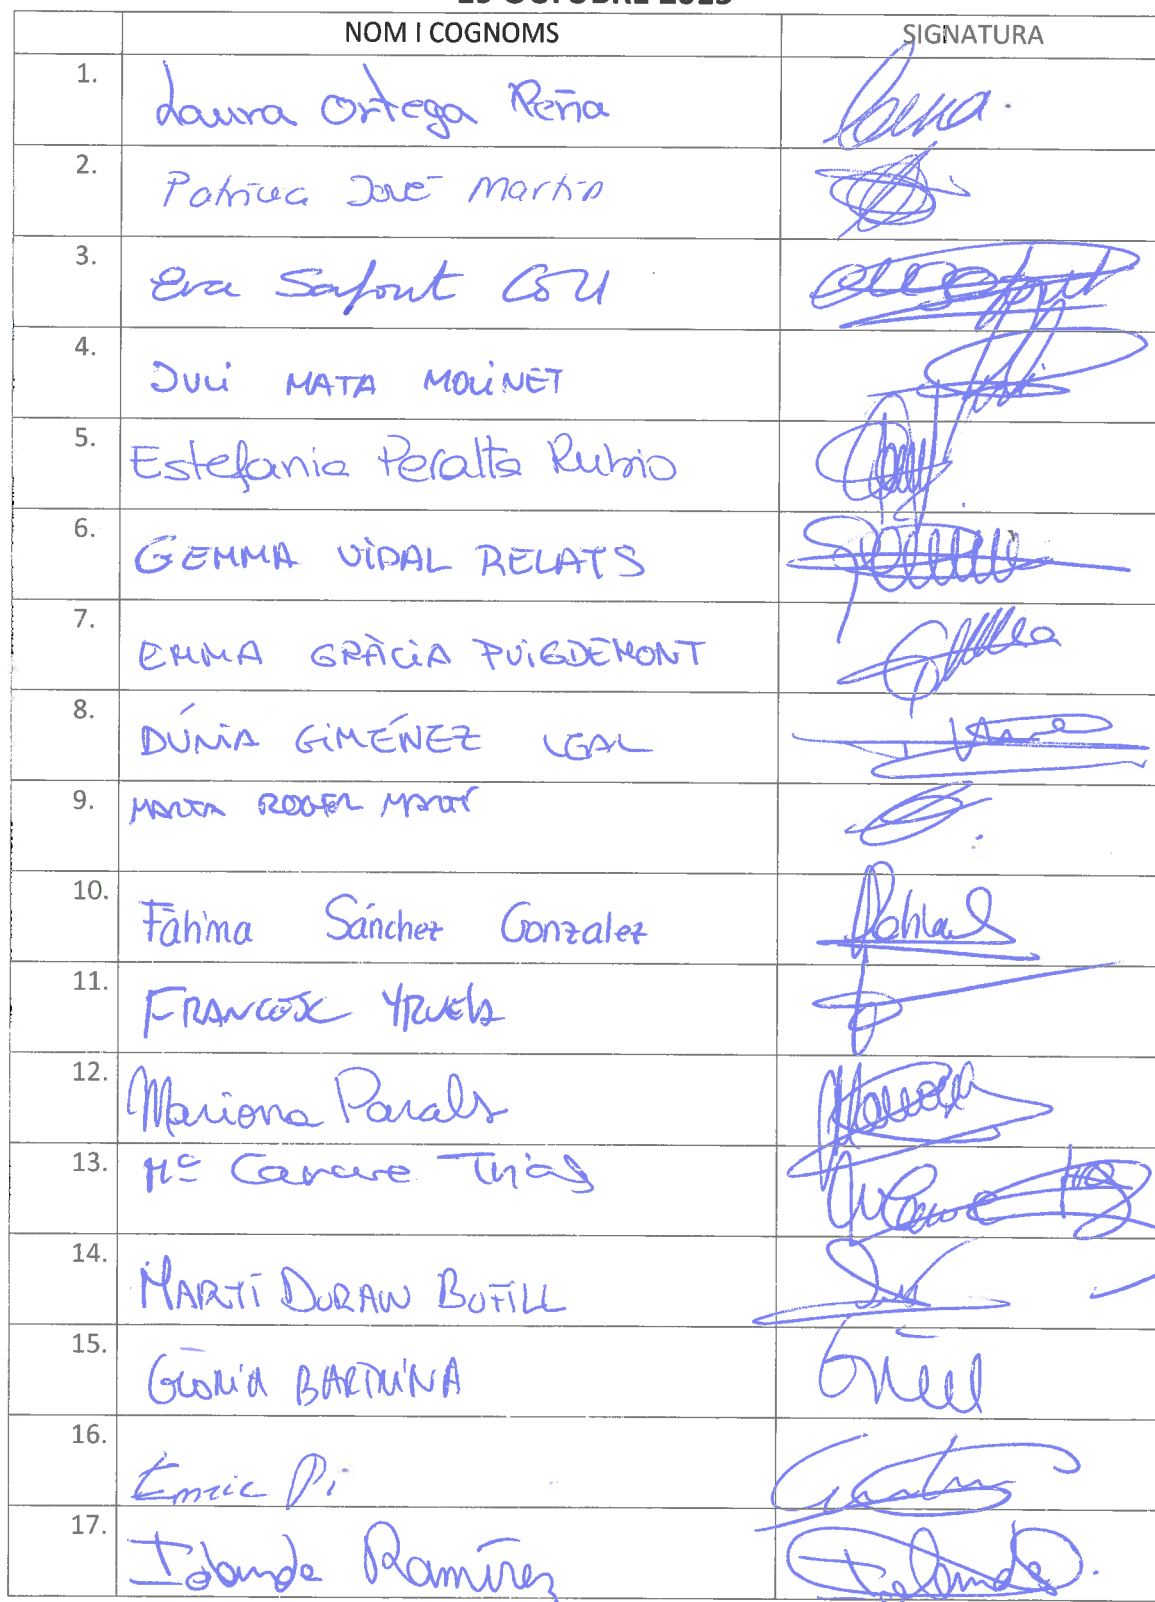 29 OCTUBRE 2025
NOM I COGNOMS SIGNATURA
1. Laura Ortega Peña Laura
2. Patricia José Martín
3. Eva Safont Coll
4. Juli MATA MOLINET
5. Estefania Peralta Rubio
6. GEMMA VIDAL RELATS
7. EMMA GRÀCIA PUIGDEMONT
8. DÚNIA GIMÉNEZ LGAL
9. MARTA ROGER MARTÍ
10. Fátima Sánchez Gonzalez
11. FRANCESC YRUELA
12. Mariona Parals
13. Mª Carme Trias
14. MARTÍ DURAN BOFILL
15. GLÒRIA BARTRINA
16. Enric Pi
17. Iolanda Ramírez Iolanda